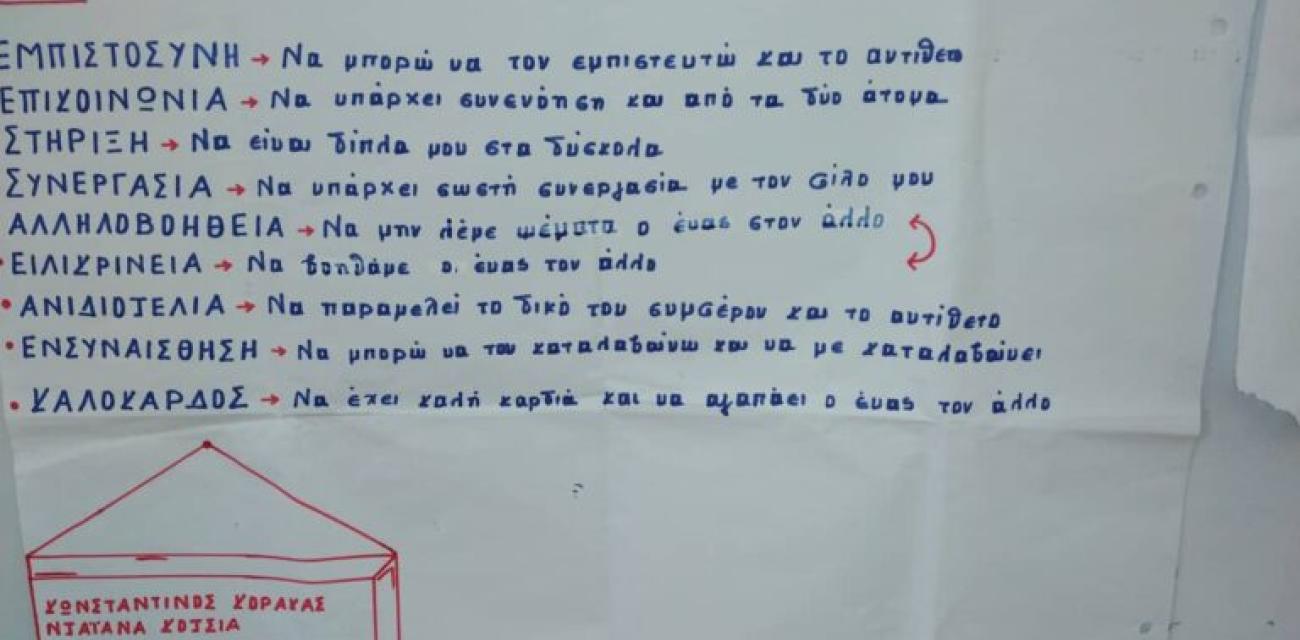 ΕΜΠΙΣΤΟΣΥΝΗ → Να μπορώ να τον εμπιστευτώ και το αντίθετο
ΕΠΙΚΟΙΝΩΝΙΑ → Να υπάρχει συνενόηση και από τα δύο άτομα
ΣΤΗΡΙΞΗ → Να είναι δίπλα μου στα δύσκολα
ΣΥΝΕΡΓΑΣΙΑ → Να υπάρχει σωστή συνεργασία με τον φίλο μου
ΑΛΛΗΛΟΒΟΗΘΕΙΑ → Να μην λέμε ψέματα ο ένας στον άλλο
• ΕΙΛΙΚΡΙΝΕΙΑ → Να βοηθάμε ο ένας τον άλλο
• ΑΝΙΔΙΟΤΕΛΙΑ → Να παραμελεί το δικό του συμφέρον και το αντίθετο
• ΕΝΣΥΝΑΙΣΘΗΣΗ → Να μπορώ να τον καταλαβαίνω και να με καταλαβαίνει
• ΚΑΛΟΚΑΡΔΟΣ → Να έχει καλή καρδιά και να αγαπάει ο ένας τον άλλο
ΚΩΝΣΤΑΝΤΙΝΟΣ ΚΟΡΑΚΑΣ
ΝΤΑΤΑΝΑ ΚΟΤΣΙΑ